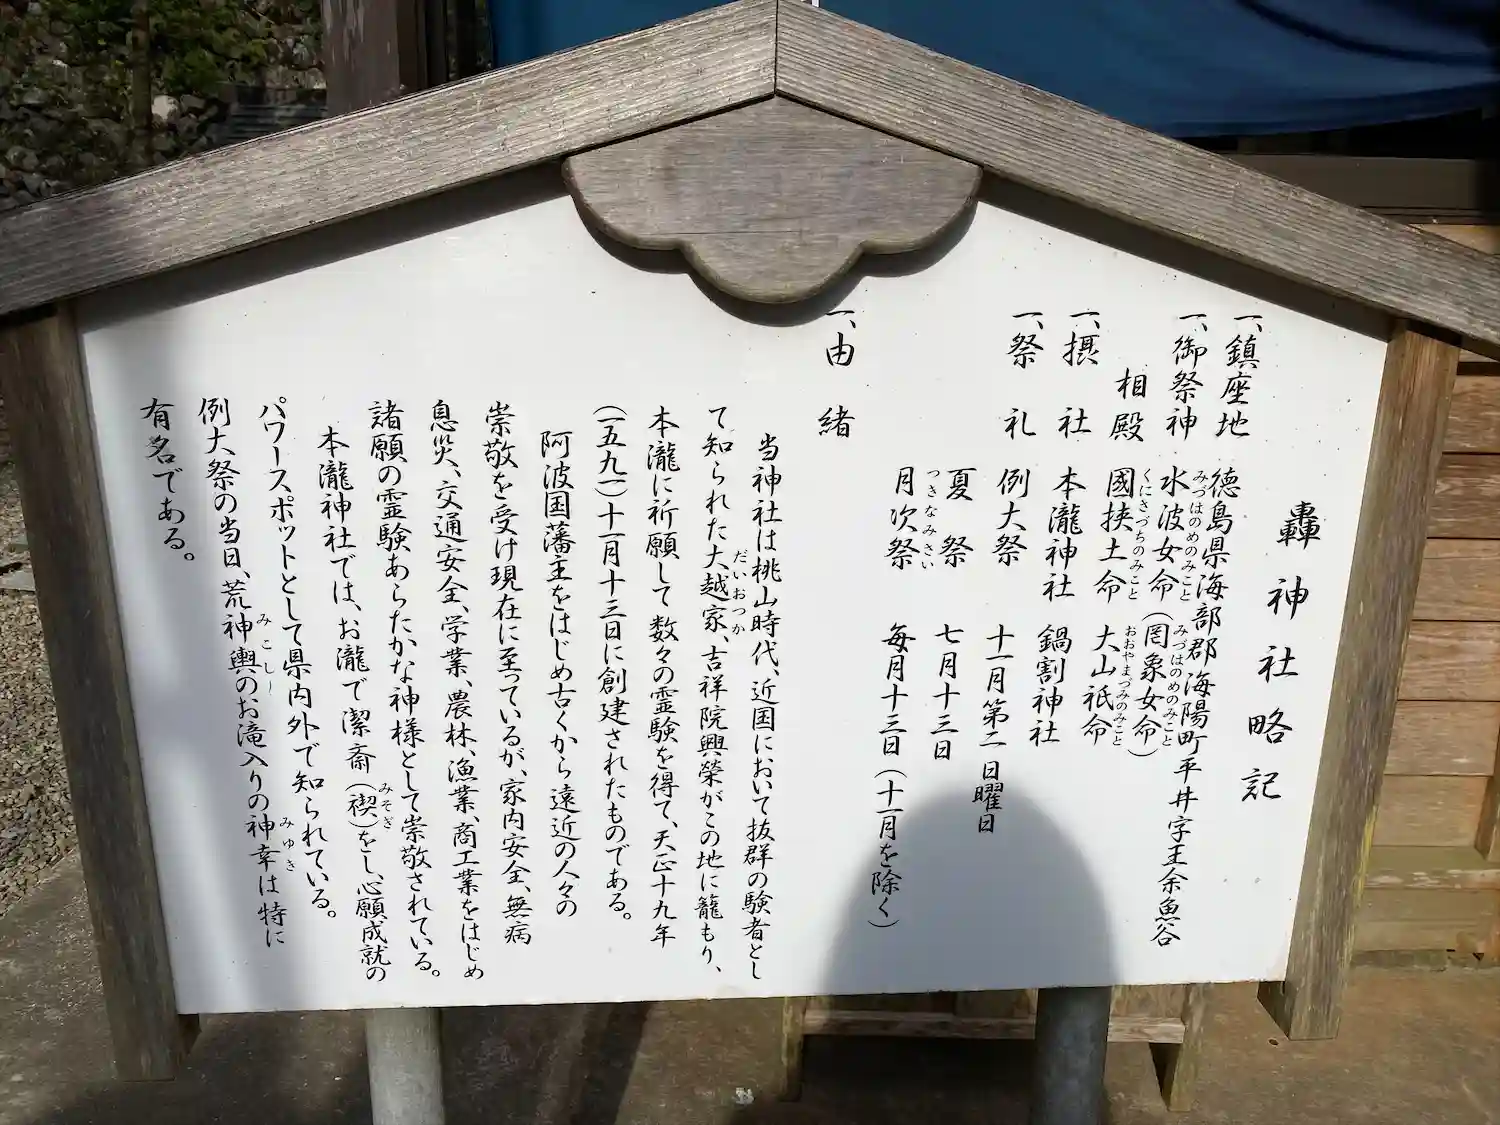 轟神社略記
一、鎮座地 徳島県海部郡海陽町平井字王余魚谷
一、御祭神 水波女命(罔象女命)
みづはのめのみこと みづはのめのみこと
相殿 國挟土命 大山祇命
くにさづちのみこと おおやまづみのみこと
一、摂社 本瀧神社 鍋割神社
一、祭礼 例大祭 十一月第二日曜日
夏祭 七月十三日
月次祭 毎月十三日(十一月を除く)
つきなみさい
一、由緒
当神社は桃山時代、近国において抜群の験者とし
て知られた大越家、吉祥院興榮がこの地に籠もり、
だいおつか
本瀧に祈願して数々の霊験を得て、天正十九年
(一五九一)十一月十三日に創建されたものである。
阿波国藩主をはじめ古くから遠近の人々の
崇敬を受け現在に至っているが、家内安全、無病
息災、交通安全、学業、農林、漁業、商工業をはじめ
諸願の霊験あらたかな神様として崇敬されている。
本瀧神社では、お瀧で潔斎(禊)をし、心願成就の
みそぎ
パワースポットとして県内外で知られている。
例大祭の当日、荒神輿のお滝入りの神幸は特に
みこし みゆき
有名である。